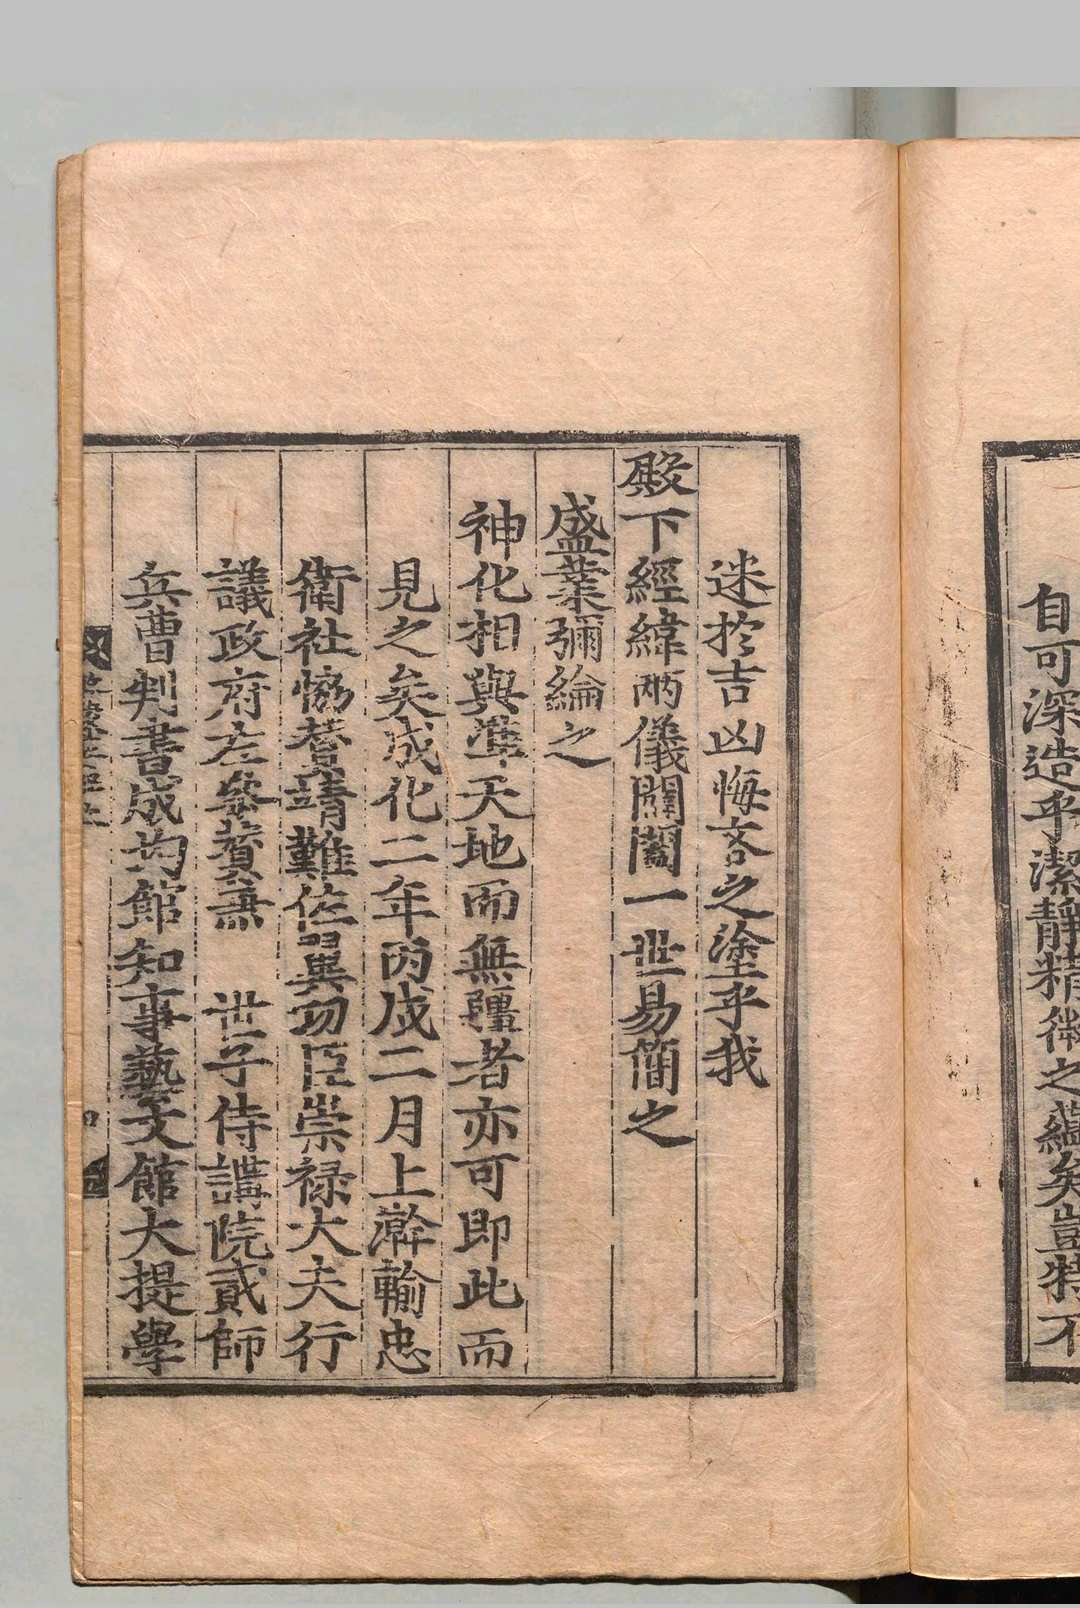 自可深造乎潔靜精微之蘊矣豈特不
迷於吉凶悔吝之塗乎我
殿下經緯兩儀闔闢一世易簡之
盛業彌綸之
神化相與準天地而無疆者亦可即此而
見之矣成化二年丙戌二月上澣輸忠
衛社協贊靖難佐翼功臣崇祿大夫行
議政府左參贊兼　世子侍講院貳師
兵曹判書成均館知事藝文館大提學